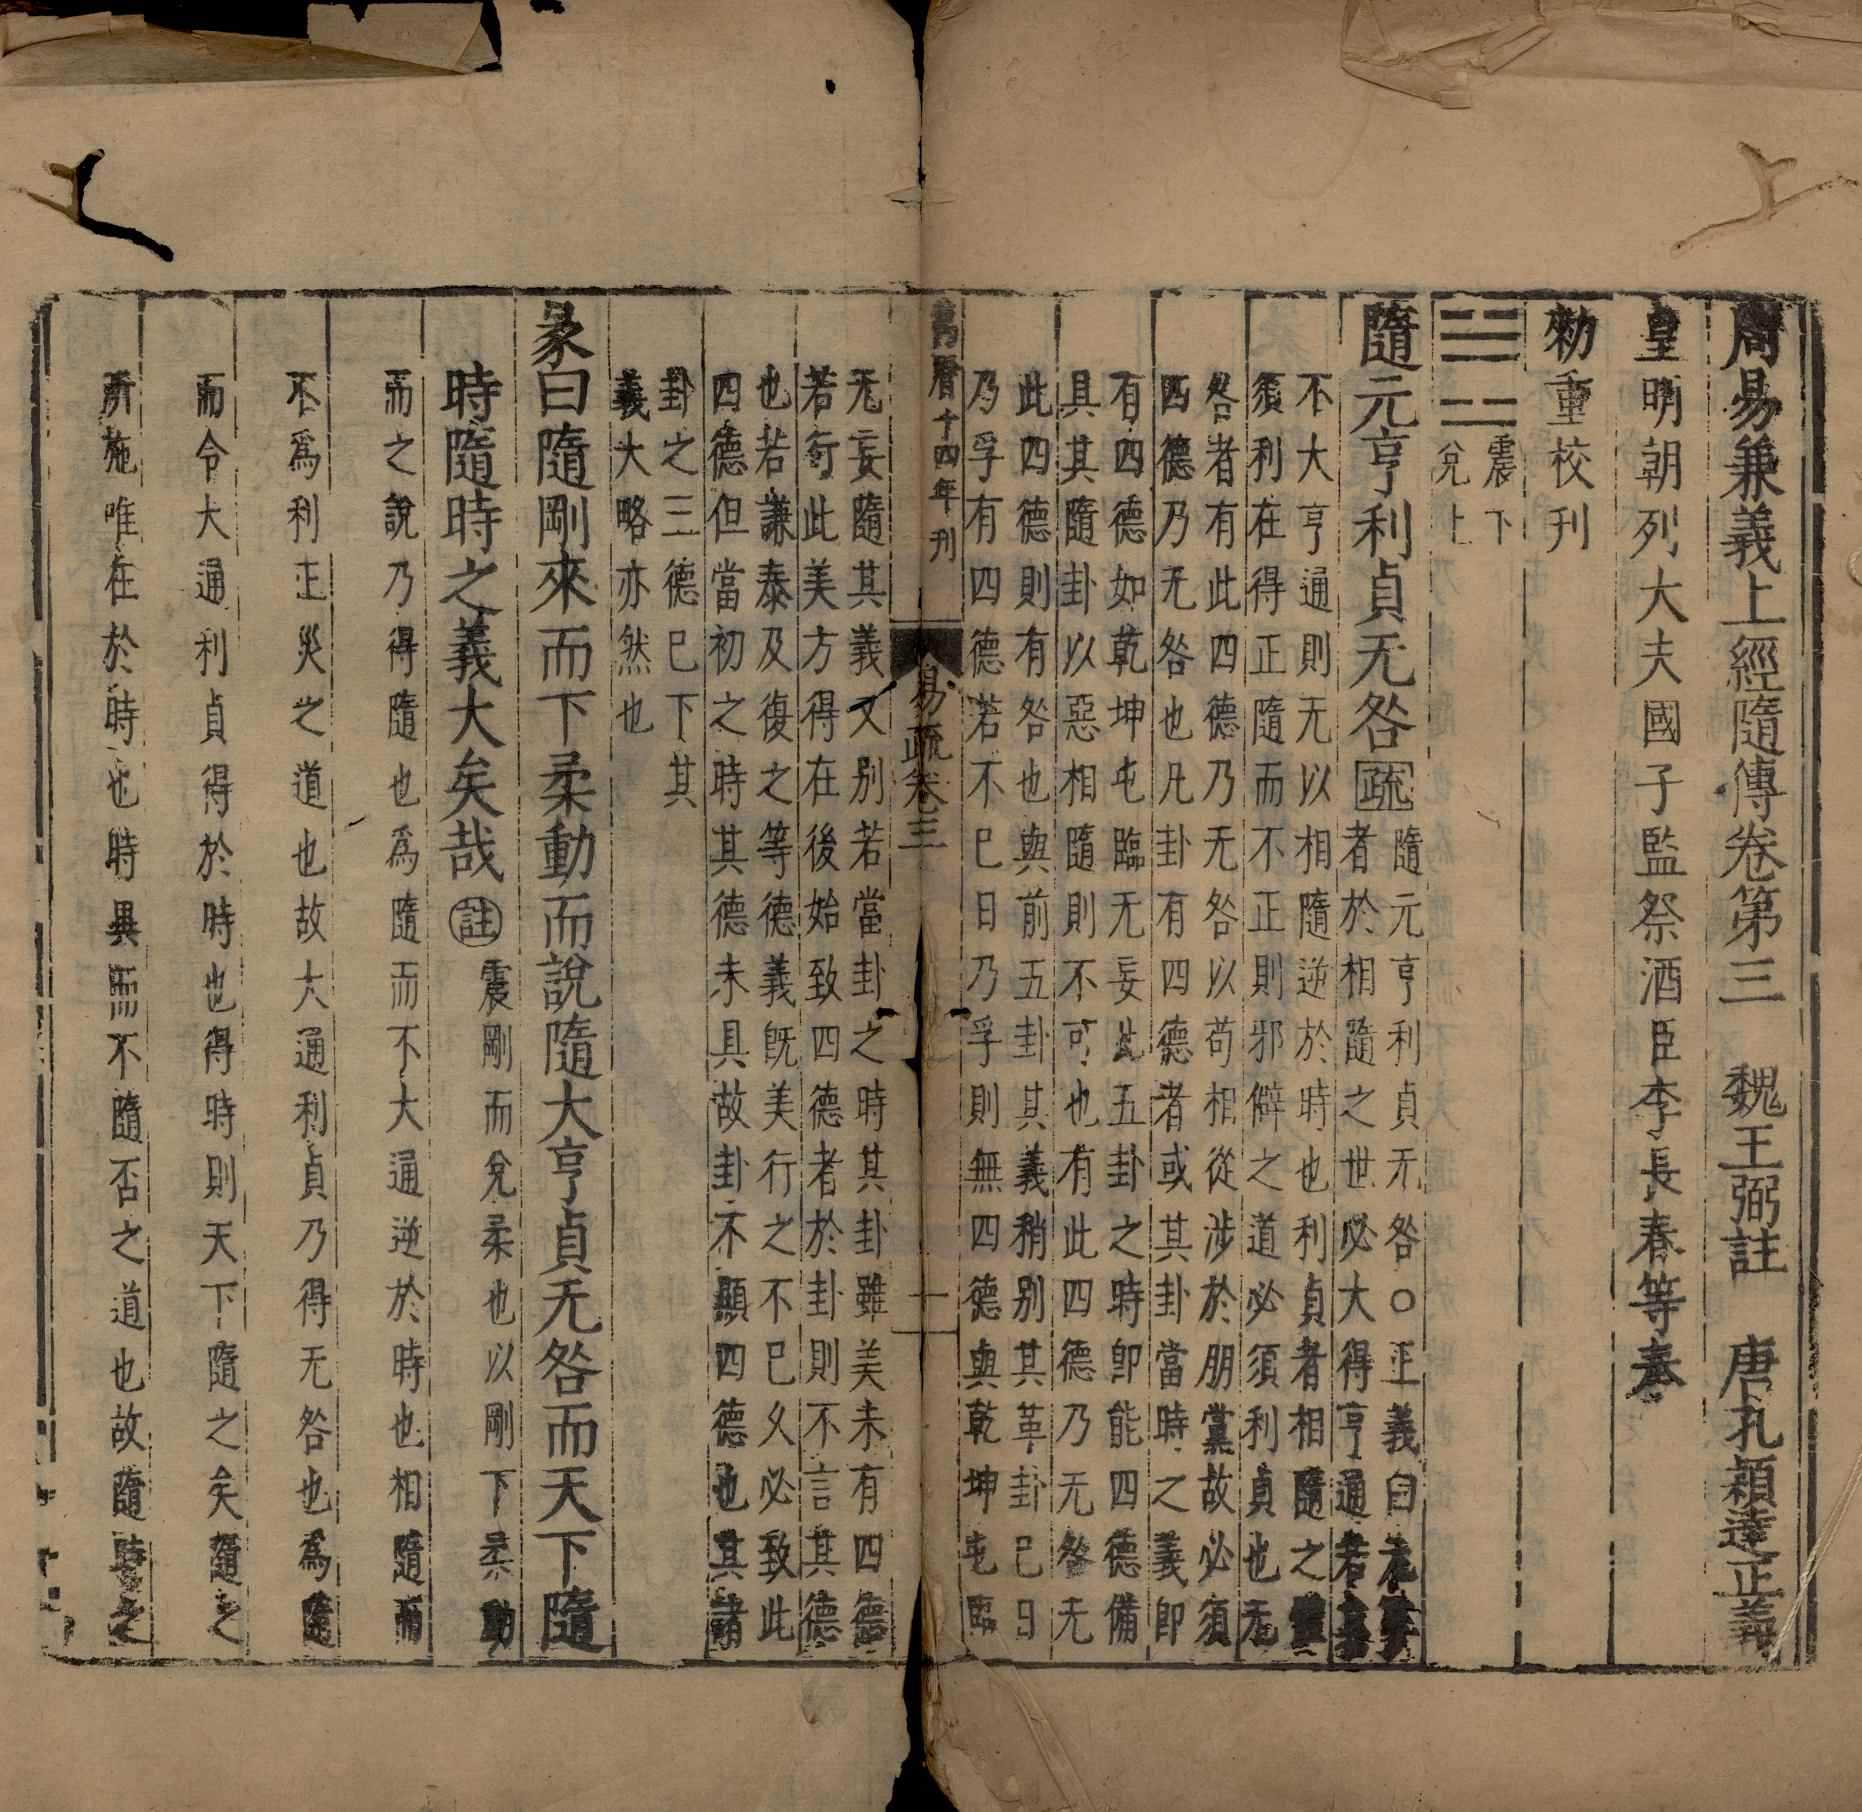 周易兼義上經隨傳卷第三　魏王弼註　唐孔穎達正義
皇明朝列大夫國子監祭酒臣李長春等奏
勑重校刊
震下
兌上
隨元亨利貞无咎疏隨元亨利貞无咎○正義曰元亨
者於相隨之世必大得亨通若其
不大亨通則无以相隨逆於時也利貞者相隨之體
須利在得正隨而不正則邪僻之道必須利貞也无
咎者有此四德乃无咎以苟相從涉於朋黨故必須
四德乃无咎也凡卦有四德者或其卦當時之義即
有四德如乾坤屯臨无妄此五卦之時即能四德備
具其隨卦以惡相隨則不可也有此四德乃无咎无
此四德則有咎也與前五卦其義稍別其革卦巳日
乃孚有四德若不巳日乃孚則無四德與乾坤屯臨
萬曆十四年刊　易疏卷三　一
无妄隨其義又別若當卦之時其卦雖美未有四德
若行此美方得在後始致四德者於卦則不言其德
也若謙泰及復之等德義既美行之不巳久必致此
四德但當初之時其德未具故卦不顯四德也其諸
卦之三德巳下其
義大略亦然也
彖曰隨剛來而下柔動而說隨大亨貞无咎而天下隨
時隨時之義大矣哉註震剛而兌柔也以剛下柔動
而之說乃得隨也為隨而不大通逆於時也相隨而
不為利正災之道也故大通利貞乃得无咎也為隨
而令大通利貞得於時也得時則天下隨之矣隨之
所施唯在於時也時異而不隨否之道也故隨時之